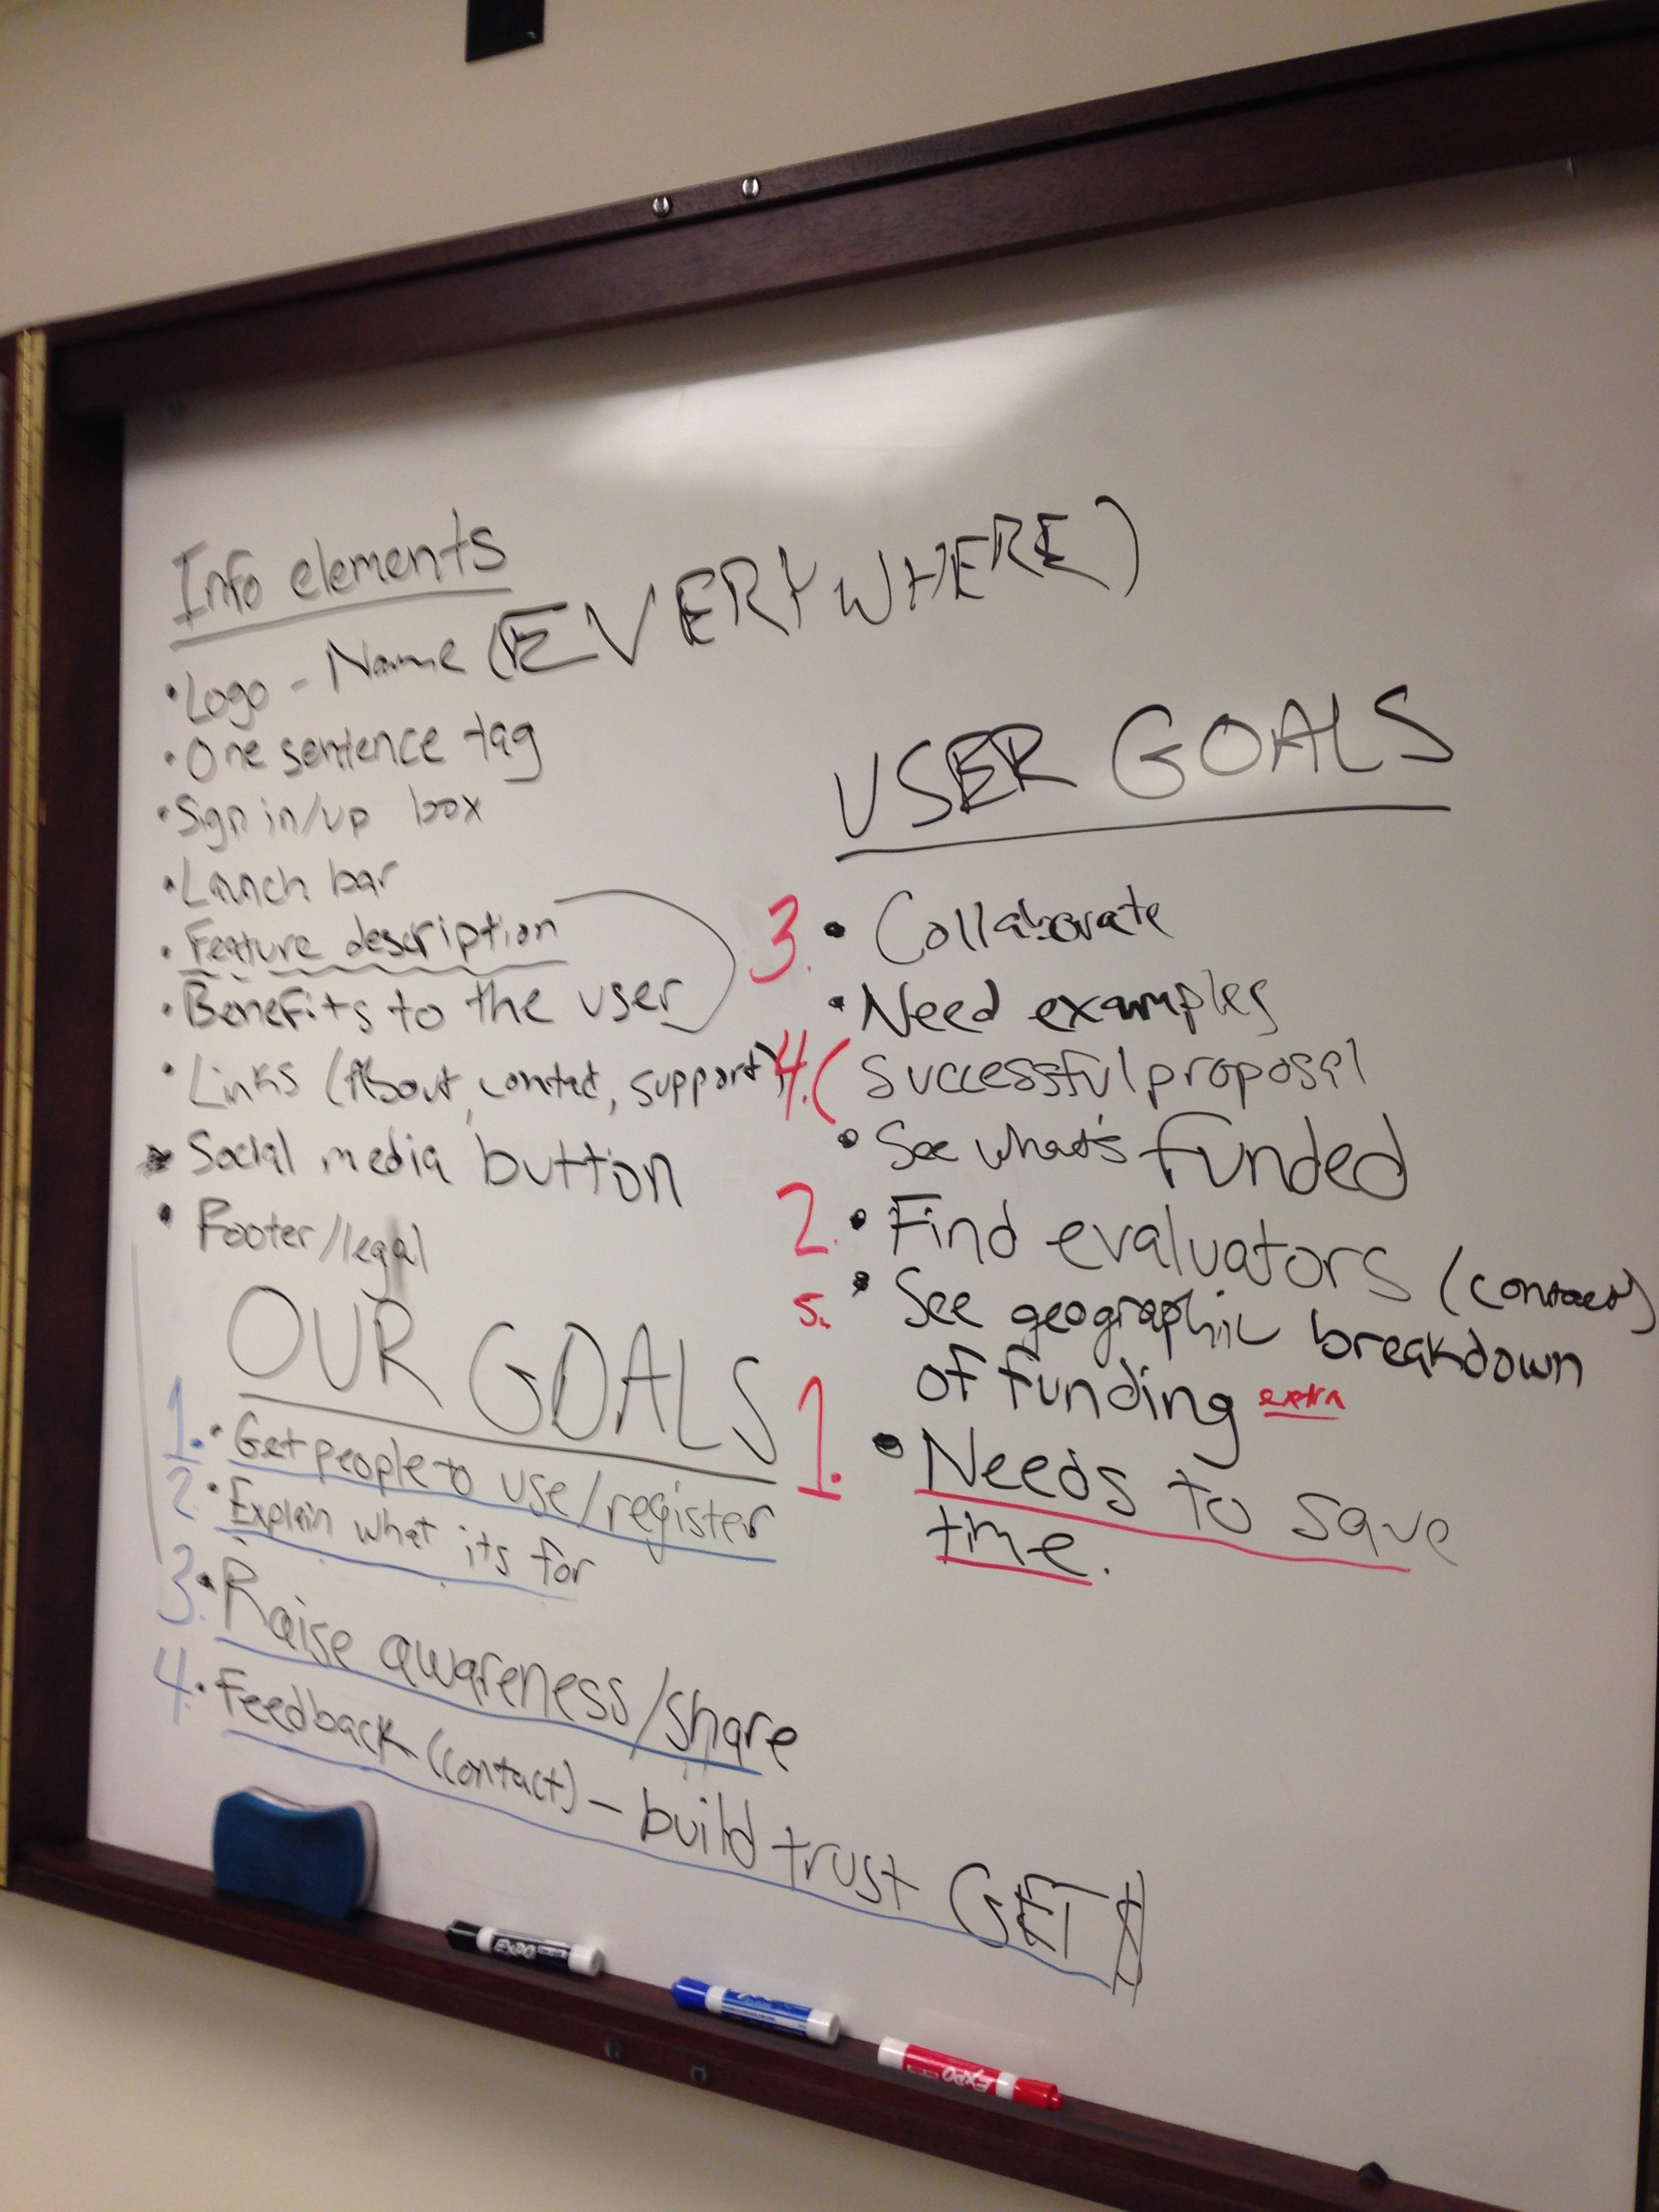 Info elements
• Logo - Name (EVERYWHERE)
• One sentence tag
• Sign in/up box
• Launch bar
• Feature description
• Benefits to the user
• Links (About, contact, support)
• Social media button
• Footer/legal
OUR GOALS
1. • Get people to use/register
2. • Explain what its for
3. • Raise awareness/share
4. • Feedback (contact) - build trust GET $
USER GOALS
3. • Collaborate
• Need examples
4. ( Successful proposal
• See what's funded
2. • Find evaluators (contact)
5. • See geographic breakdown
of funding extra
1. • Needs to save
time.
EXPO
EXPO